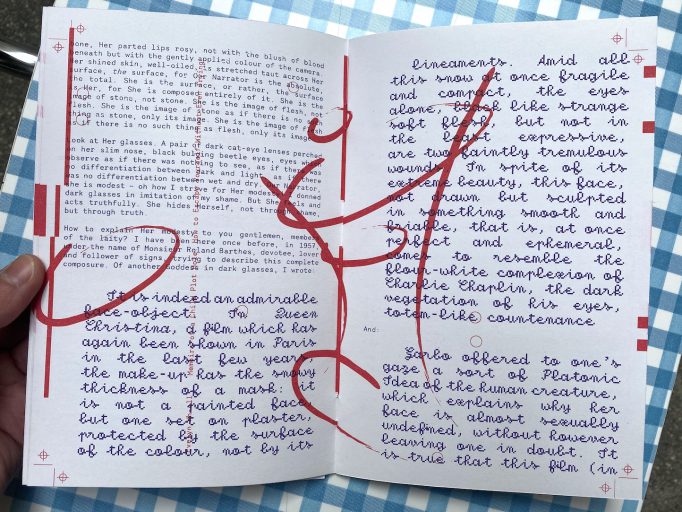 bone, Her parted lips rosy, not with the blush of blood
beneath but with the gently applied colour of the camera.
Her shined skin, well-oiled, is stretched taut across Her
surface, the surface, for Our Narrator is the absolute,
the total: She is the surface, or rather, the surface
is Her, for She is composed entirely of it. She is the
image of stone, not stone. She is the image of flesh, not
flesh. She is the image of stone as if there is no such
thing as stone, only its image. She is the image of flesh
as if there is no such thing as flesh, only its image.
Look at Her glasses. A pair of dark cat-eye lenses perched
on her slim nose, black bulging beetle eyes, eyes which
observe as if there was nothing to see, as if there was
no differentiation between dark and light, as if there
was no differentiation between wet and dry. Our Narrator,
she is modest – oh how I strive for Her modesty! I donned
dark glasses in imitation of my shame. But She feels and
acts truthfully. She hides Herself, not through shame,
but through truth.
How to explain Her modesty to you gentlemen, members
of the laity? I have been there once before, in 1957,
under the name of Monsieur Roland Barthes, devotee, lover
and follower of signs, trying to describe this complete
composure. Of another Goddess in dark glasses, I wrote:
It is indeed an admirable
face-object. In Queen
Christina, a film which has
again been shown in Paris
in the last few years,
the make-up has the snowy
thickness of a mask: it
is not a painted face,
but one set in plaster,
protected by the surface
of the colour, not by its
lineaments. Amid all
this snow at once fragile
and compact, the eyes
alone, black like strange
soft flesh, but not in
the least expressive,
are two faintly tremulous
wounds. In spite of its
extreme beauty, this face,
not drawn but sculpted
in something smooth and
friable, that is, at once
perfect and ephemeral,
comes to resemble the
flour-white complexion of
Charlie Chaplin, the dark
vegetation of his eyes,
totem-like countenance
And:
Garbo offered to one's
gaze a sort of Platonic
Idea of the human creature,
which explains why her
face is almost sexually
undefined, without however
leaving one in doubt. It
is true that this film (in